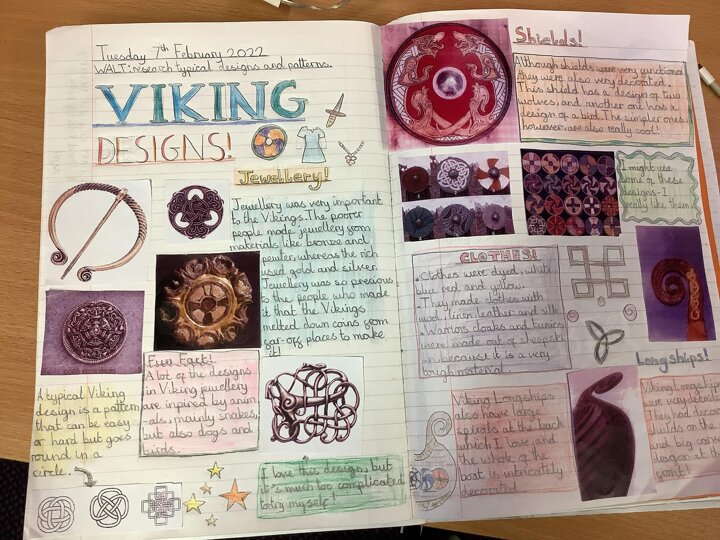 Tuesday 7th February 2022
WALT: research typical designs and patterns.
VIKING
DESIGNS!
Jewellery!
Jewellery was very important
to the Vikings. The poorer
people made jewellery from
materials like bronze and
pewter, whereas the rich
used gold and silver.
Jewellery was so precious
to the people who made
it that the Vikings
melted down coins from
far-off places to make
it!
Fun Fact!
A lot of the designs
in Viking jewellery
are inpired by anim
-als, mainly snakes,
but also dogs and
birds.
A typical Viking
design is a pattern
that can be easy
or hard but goes
round in a
circle.
I love this design, but
it's much too complicated
to try myself!
Shields!
Although shields were very functional
they were also very decorated.
This shield has a design of two
wolves, and another one has a
design of a bird. The simpler ones
however are also really cool!
I might use
some of these
designs - I
really like them
CLOTHES!
• Clothes were dyed, white,
blue, red and yellow.
• They made clothes with
wool, linen leather and silk
• Warriors cloaks and tunics
were made out of sheepski
n because it is a very
tough material.
Longships!
Viking Longships
also have large
spirals at the back
which I love, and
the whole of the
boat is intricately
decorated!
Viking Longships
were very
They had deco
on the
and big
at the
front!